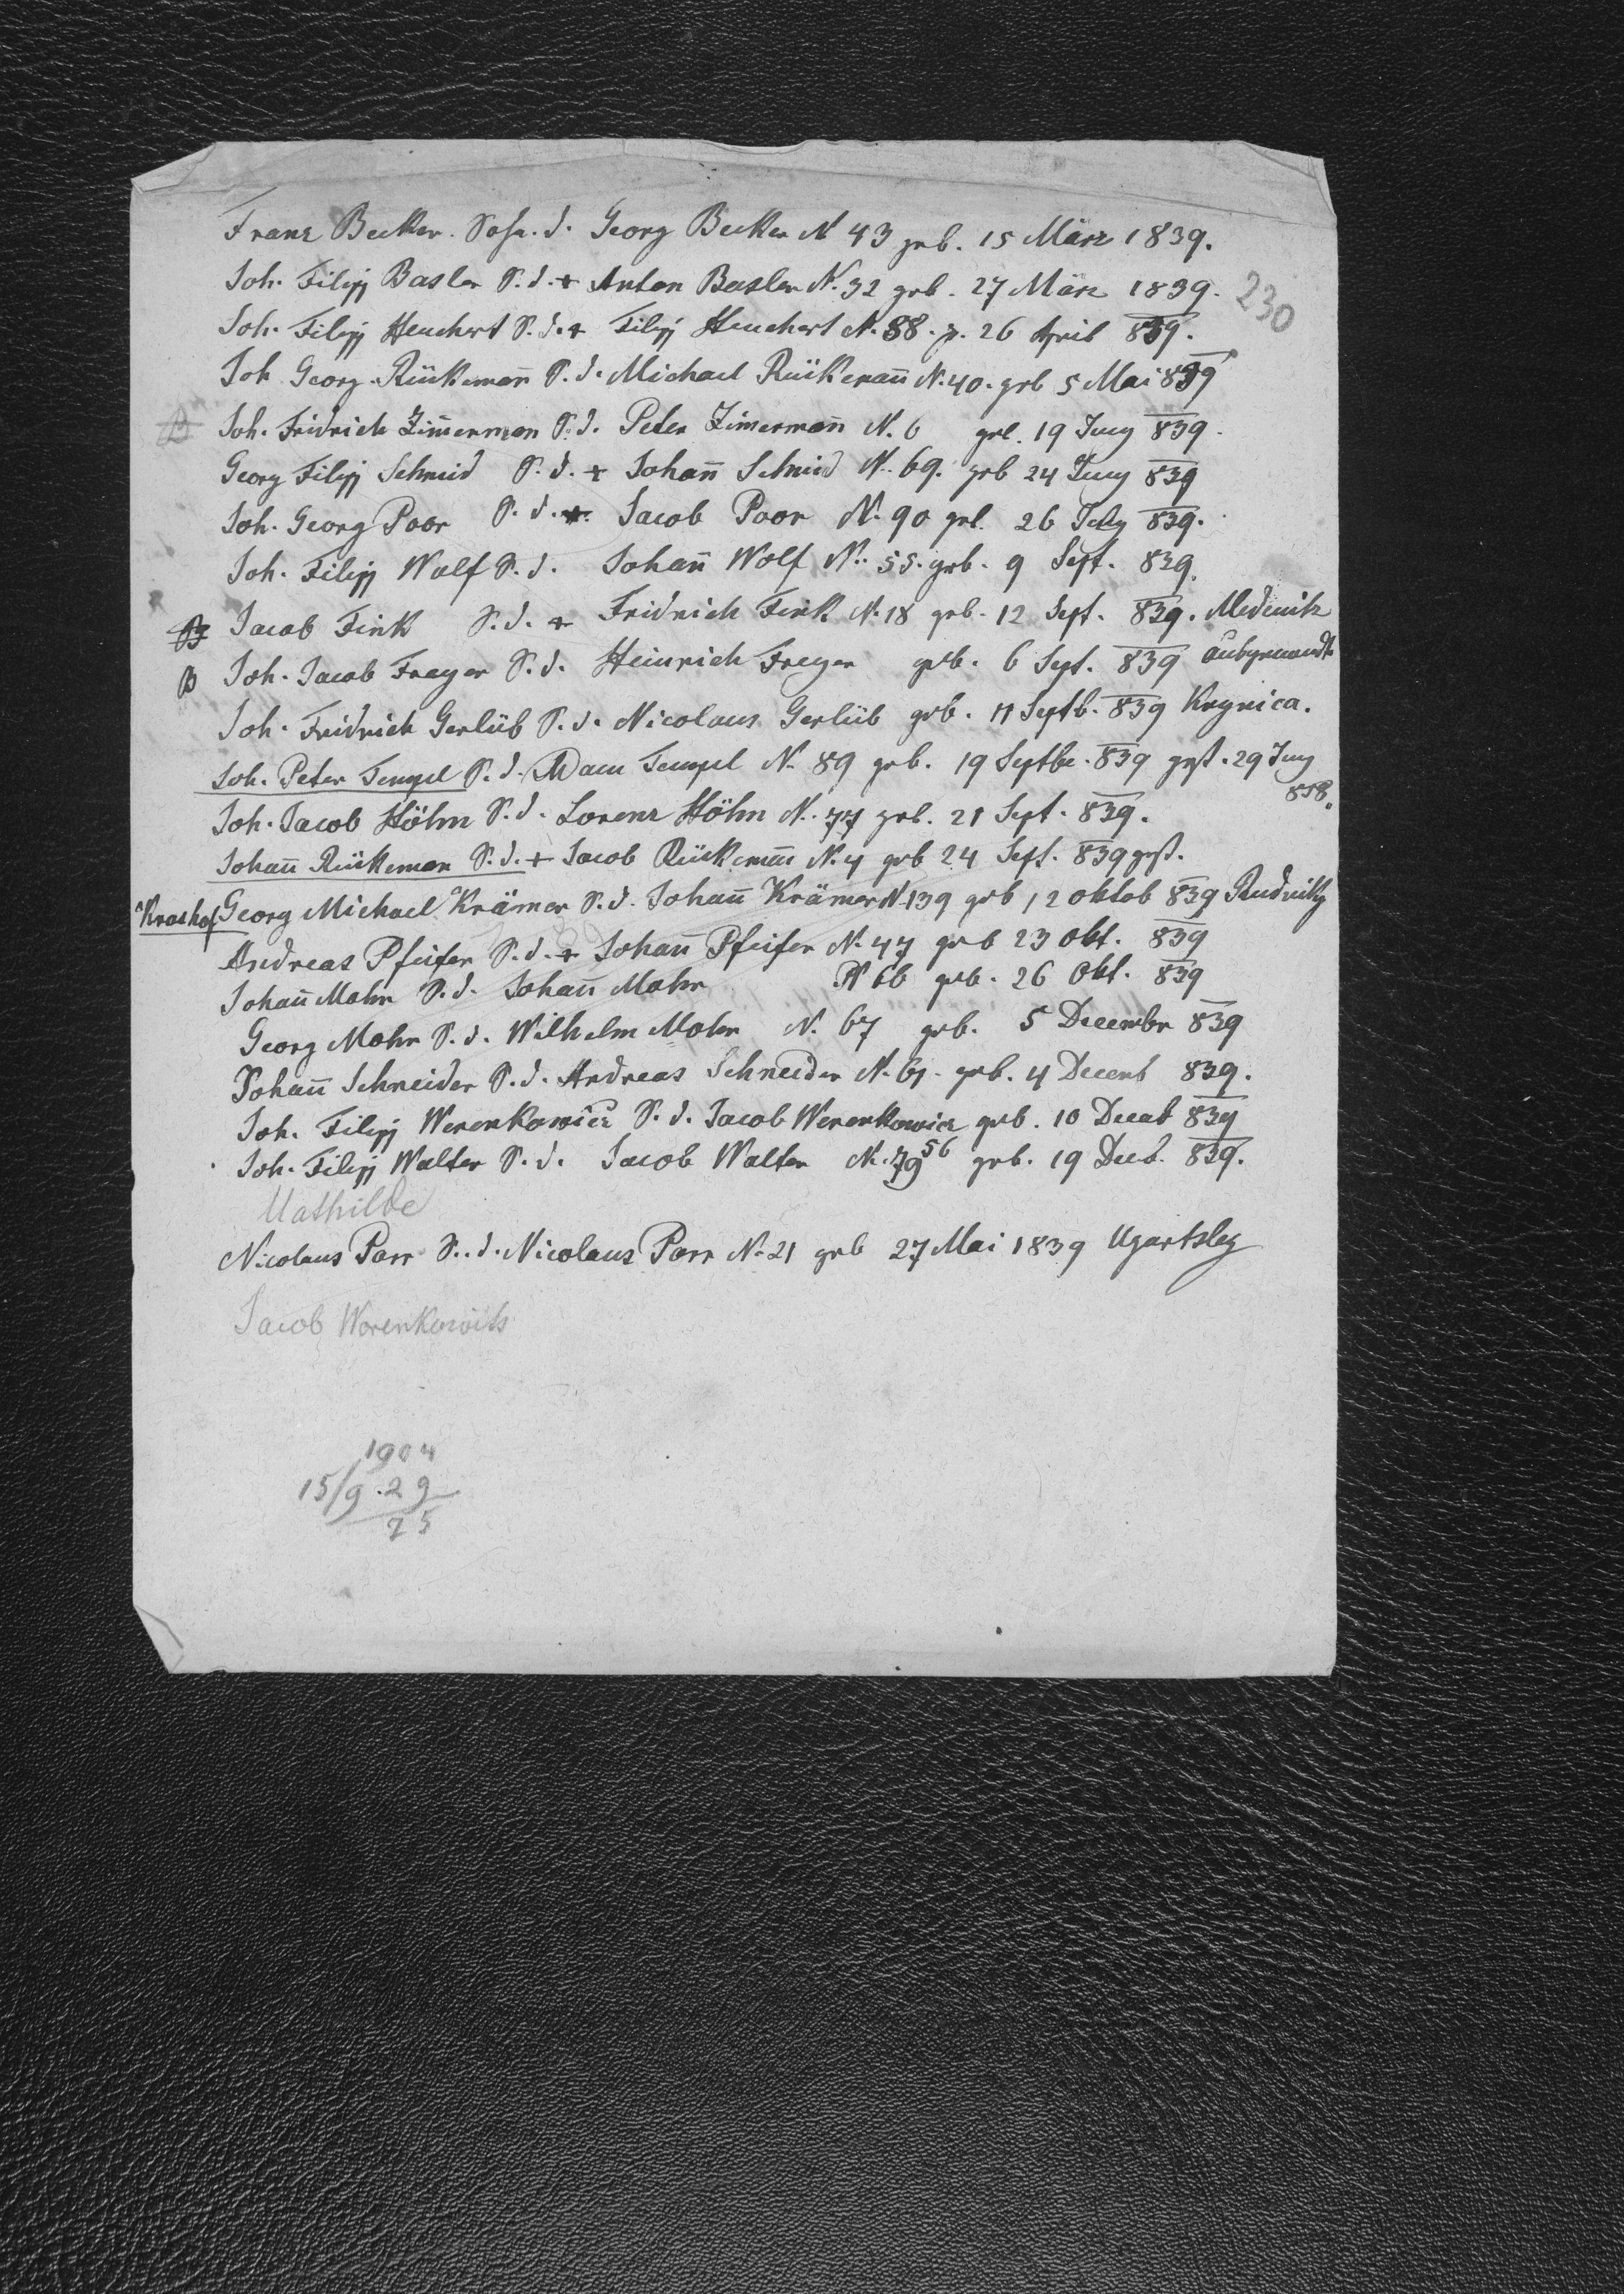 Franz Becker. Sohn. d. Georg Becker N 43 geb. 15 März 1839.
Joh. Filipp Basler S. d. + Anton Basler N. 32 geb. 27 März 1839.
230
Joh. Filipp Heuchert S. d. + Filipp Heuchert N. 88. g. 26 April 839.
Joh Georg Rückeman̄ S. d. Michael Rückeman̄ N. 40. geb 5 Mai 839
B Joh. Fridrich Zim̄erman S. d. Peter Zimerman̄ N. 6 geb. 19 Juny 839.
Georg Filipp Schmid S. d. + Johan̄ Schmid N. 69. geb 24 Juny 839
Joh. Georg Poor S. d. + Jacob Poor N. 90 geb. 26 July 839.
Joh. Filipp Wolf S. d. Johan̄ Wolf N. 55. geb. 9 Sept. 839.
B Jacob Fink S. d. + Fridrich Fink N. 18 geb. 12 Sept. 839. Medenitz
B Joh. Jacob Freyer S. d. Heinrich Freyer geb. 6 Sept. 839 ausgewandt
Joh. Fridrich Gerlüb S. d. Nicolaus Gerlüb geb. 11 Septb. 839 Krynica.
Joh. Peter Tempel S. d. Adam Tempel N. 89 geb. 19 Septbr. 839 gest. 29 Juny
858.
Joh. Jacob Höhm S. d. Lorenz Höhm N. 77 geb. 21 Sept. 839.
Johan̄ Rückeman S. d. + Jacob Rückeman̄ N. 4 geb 24 Sept. 839 gest.
Georg Michael Krämer S. d. Johan̄ Krämer N 139 geb 12 oktob 839 Rudnitz
Andreas Pfeifer S. d. + Johan̄ Pfeifer N. 47 geb 23 Okt. 839
Johan̄ Mohr S. d. Johan̄ Mohr N 66 geb. 26 Okt. 839
Georg Mohr S. d. Wilhelm Mohr N. 67 geb. 5 Decembr 839
Johan̄ Schneider S. d. Andreas Schneider N. 61. geb. 4 Decemb 839.
Joh. Filipp Werenkowicz S. d. Jacob Werenkowicz geb. 10 Decab 839
Joh. Filipp Walter S. d. Jacob Walter N. 79 56 geb. 19 Decb. 839.
Mathilde
Nicolaus Parr S. d. Nicolaus Parr N. 21 geb 27 Mai 1839 Ugartsleg
Jacob Worenkowits
1904
15/9.29
75